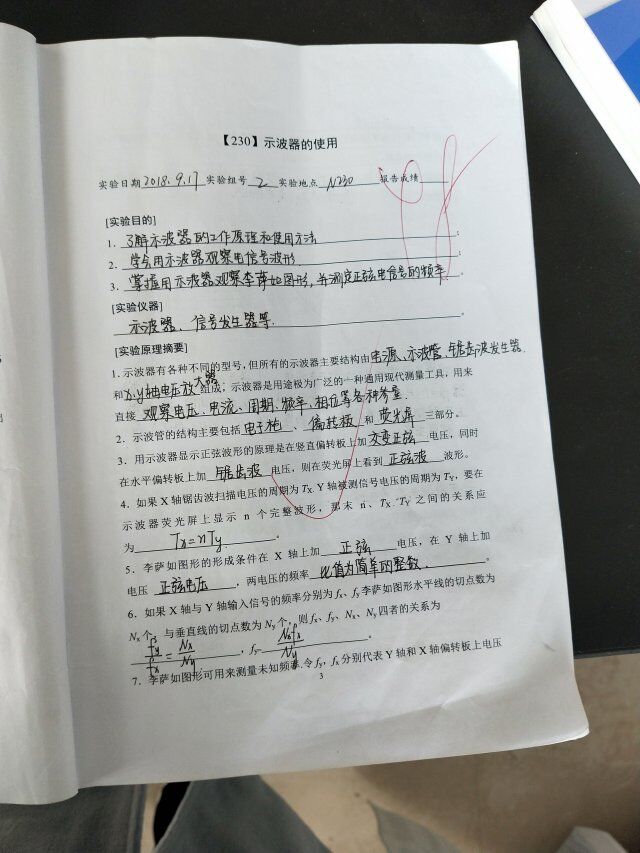 【230】示波器的使用
实验日期2018.9.17实验组号 2 实验地点 N230 报告成绩
[实验目的]
1. 了解示波器的工作原理和使用方法;
2. 学会用示波器观察电信号波形;
3. 掌握用示波器观察李萨如图形,并测定正弦电信号的频率。
[实验仪器]
示波器、信号发生器等。
[实验原理摘要]
1.示波器有各种不同的型号,但所有的示波器主要结构由电源、示波管、锯齿波发生器
和x.y轴电压放大器组成;示波器是用途极为广泛的一种通用现代测量工具,用来
直接 观察电压、电流、周期、频率、相位等各种参量.
2. 示波管的结构主要包括 电子枪、偏转板和荧光屏三部分。
3. 用示波器显示正弦波形的原理是在竖直偏转板上加交变正弦电压,同时
在水平偏转板上加 锯齿波 电压,则在荧光屏上看到 正弦波 波形。
4. 如果 X 轴锯齿波扫描电压的周期为 TX. Y 轴被测信号电压的周期为 TY, 要在
示波器荧光屏上显示 n 个完整波形,那末 n、TX、TY 之间的关系应
为 Tx=nTy.。
5. 李萨如图形的形成条件在 X 轴上加 正弦 电压,在 Y 轴上加
电压 正弦电压,两电压的频率 比值为简单的整数.。
6. 如果 X 轴与 Y 轴输入信号的频率分别为 fx、fy 李萨如图形水平线的切点数为
Nx 个,与垂直线的切点数为 Ny 个,则 fx、fy、Nx、Ny 四者的关系为
fy/fx = Nx/Ny, fy= Nxfx/Ny。
7. 李萨如图形可用来测量未知频率.令 fy, fx 分别代表 Y 轴和 X 轴偏转板上电压
3